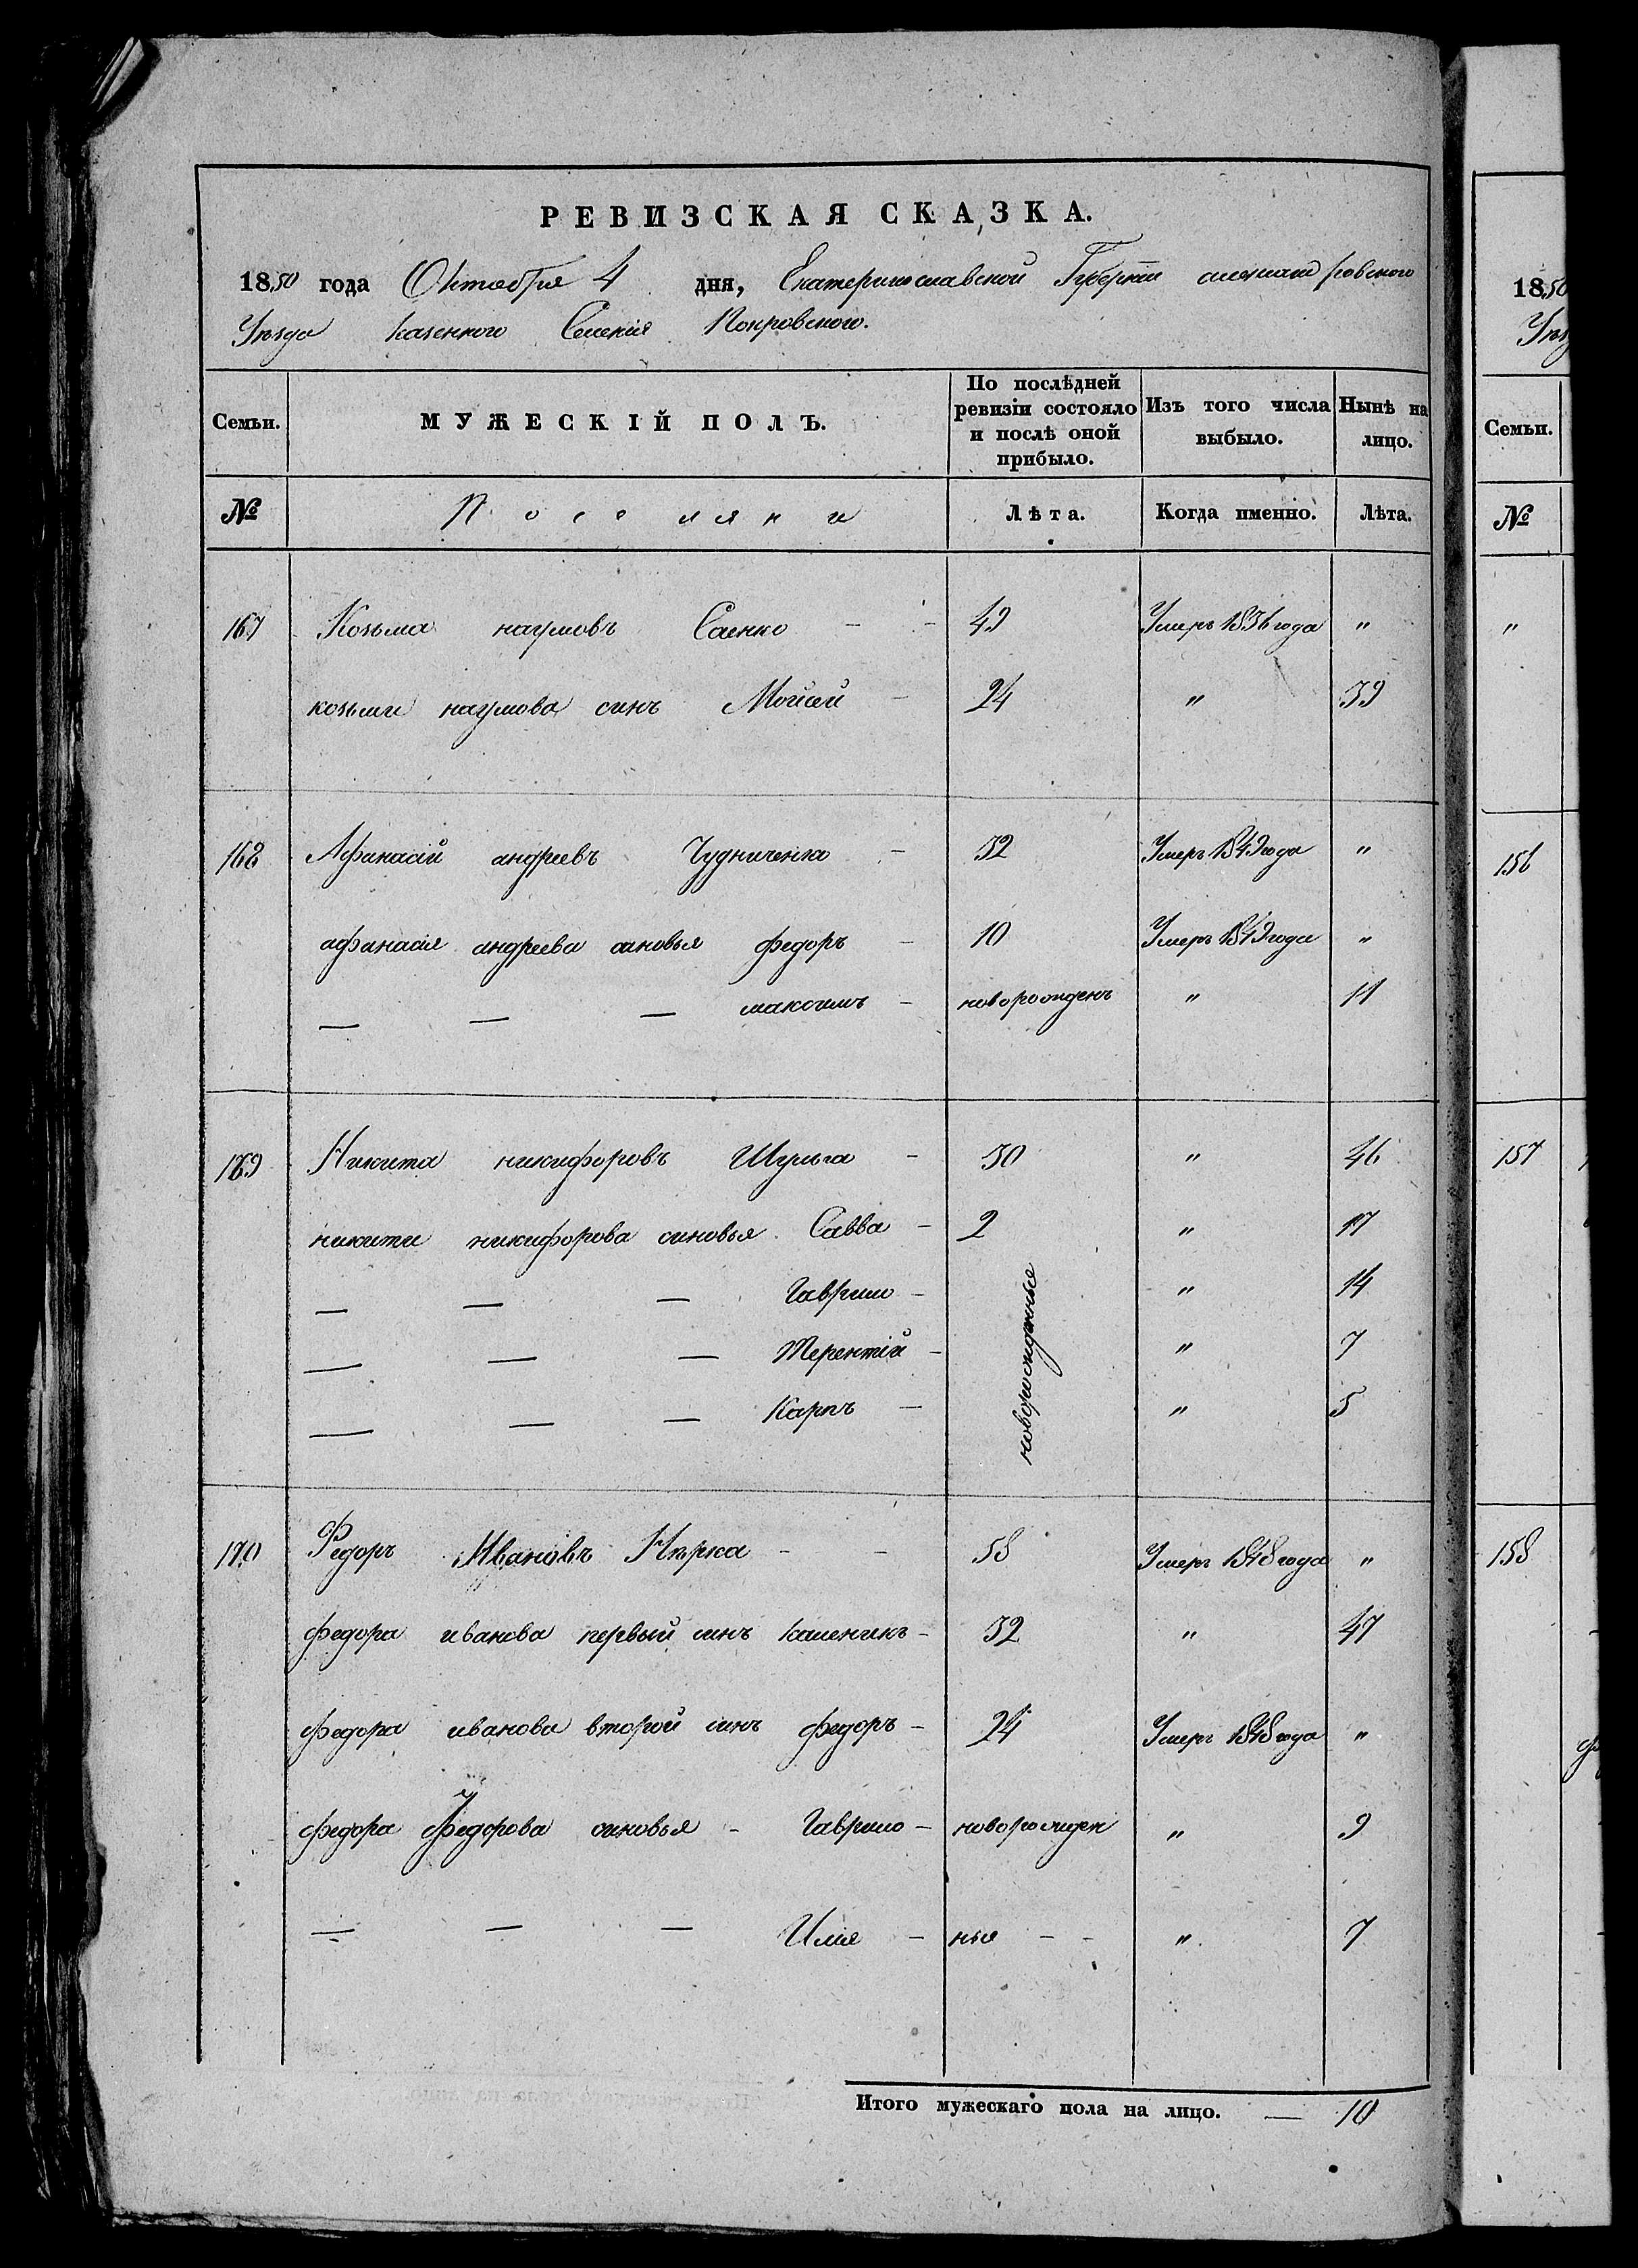 РЕВИЗСКАЯ СКАЗКА.
1850 года Октября 4 дня, Екатеринославской Губерніи
Уезда казенного Селенія Покровского.
Семьи. МУЖЕСКІЙ ПОЛЪ. По послѣдней ревизіи состояло и послѣ оной прибыло. Изъ того числа выбыло. Нынѣ на лицо.
№ Поселяни Лѣта. Когда именно. Лѣта.
167 Козьма наумовъ Саенко - - 49 Умеръ 1836 года "
козьми наумова синъ Мойсей - 24 " 39
168 Афанасій андреевъ Чудниченко - 32 Умеръ 1849 года "
афанасія андреева синовья федоръ - 10 Умеръ 1849 года "
— — — максимъ - новорожденъ " 11
169 Никита никифоровъ Шульга - 30 " 46
никити никифорова синовья Савва - 2 " 17
— — — Гаврило - новорожденные " 14
— — — Терентій - " 7
— — — Карпъ - " 5
170 Федоръ Ивановъ Нѣрка - - 58 Умеръ 1848 года "
федора иванова первый синъ каленикъ - 32 " 47
федора иванова второй синъ федоръ - 24 Умеръ 1848 года "
федора Федорова синовья - Гаврило - новорожден " 9
— — — Илія - ныя - - " 7
Итого мужескаго пола на лицо. — 10
1850
Уѣз
Семьи.
№
"
156
157
158